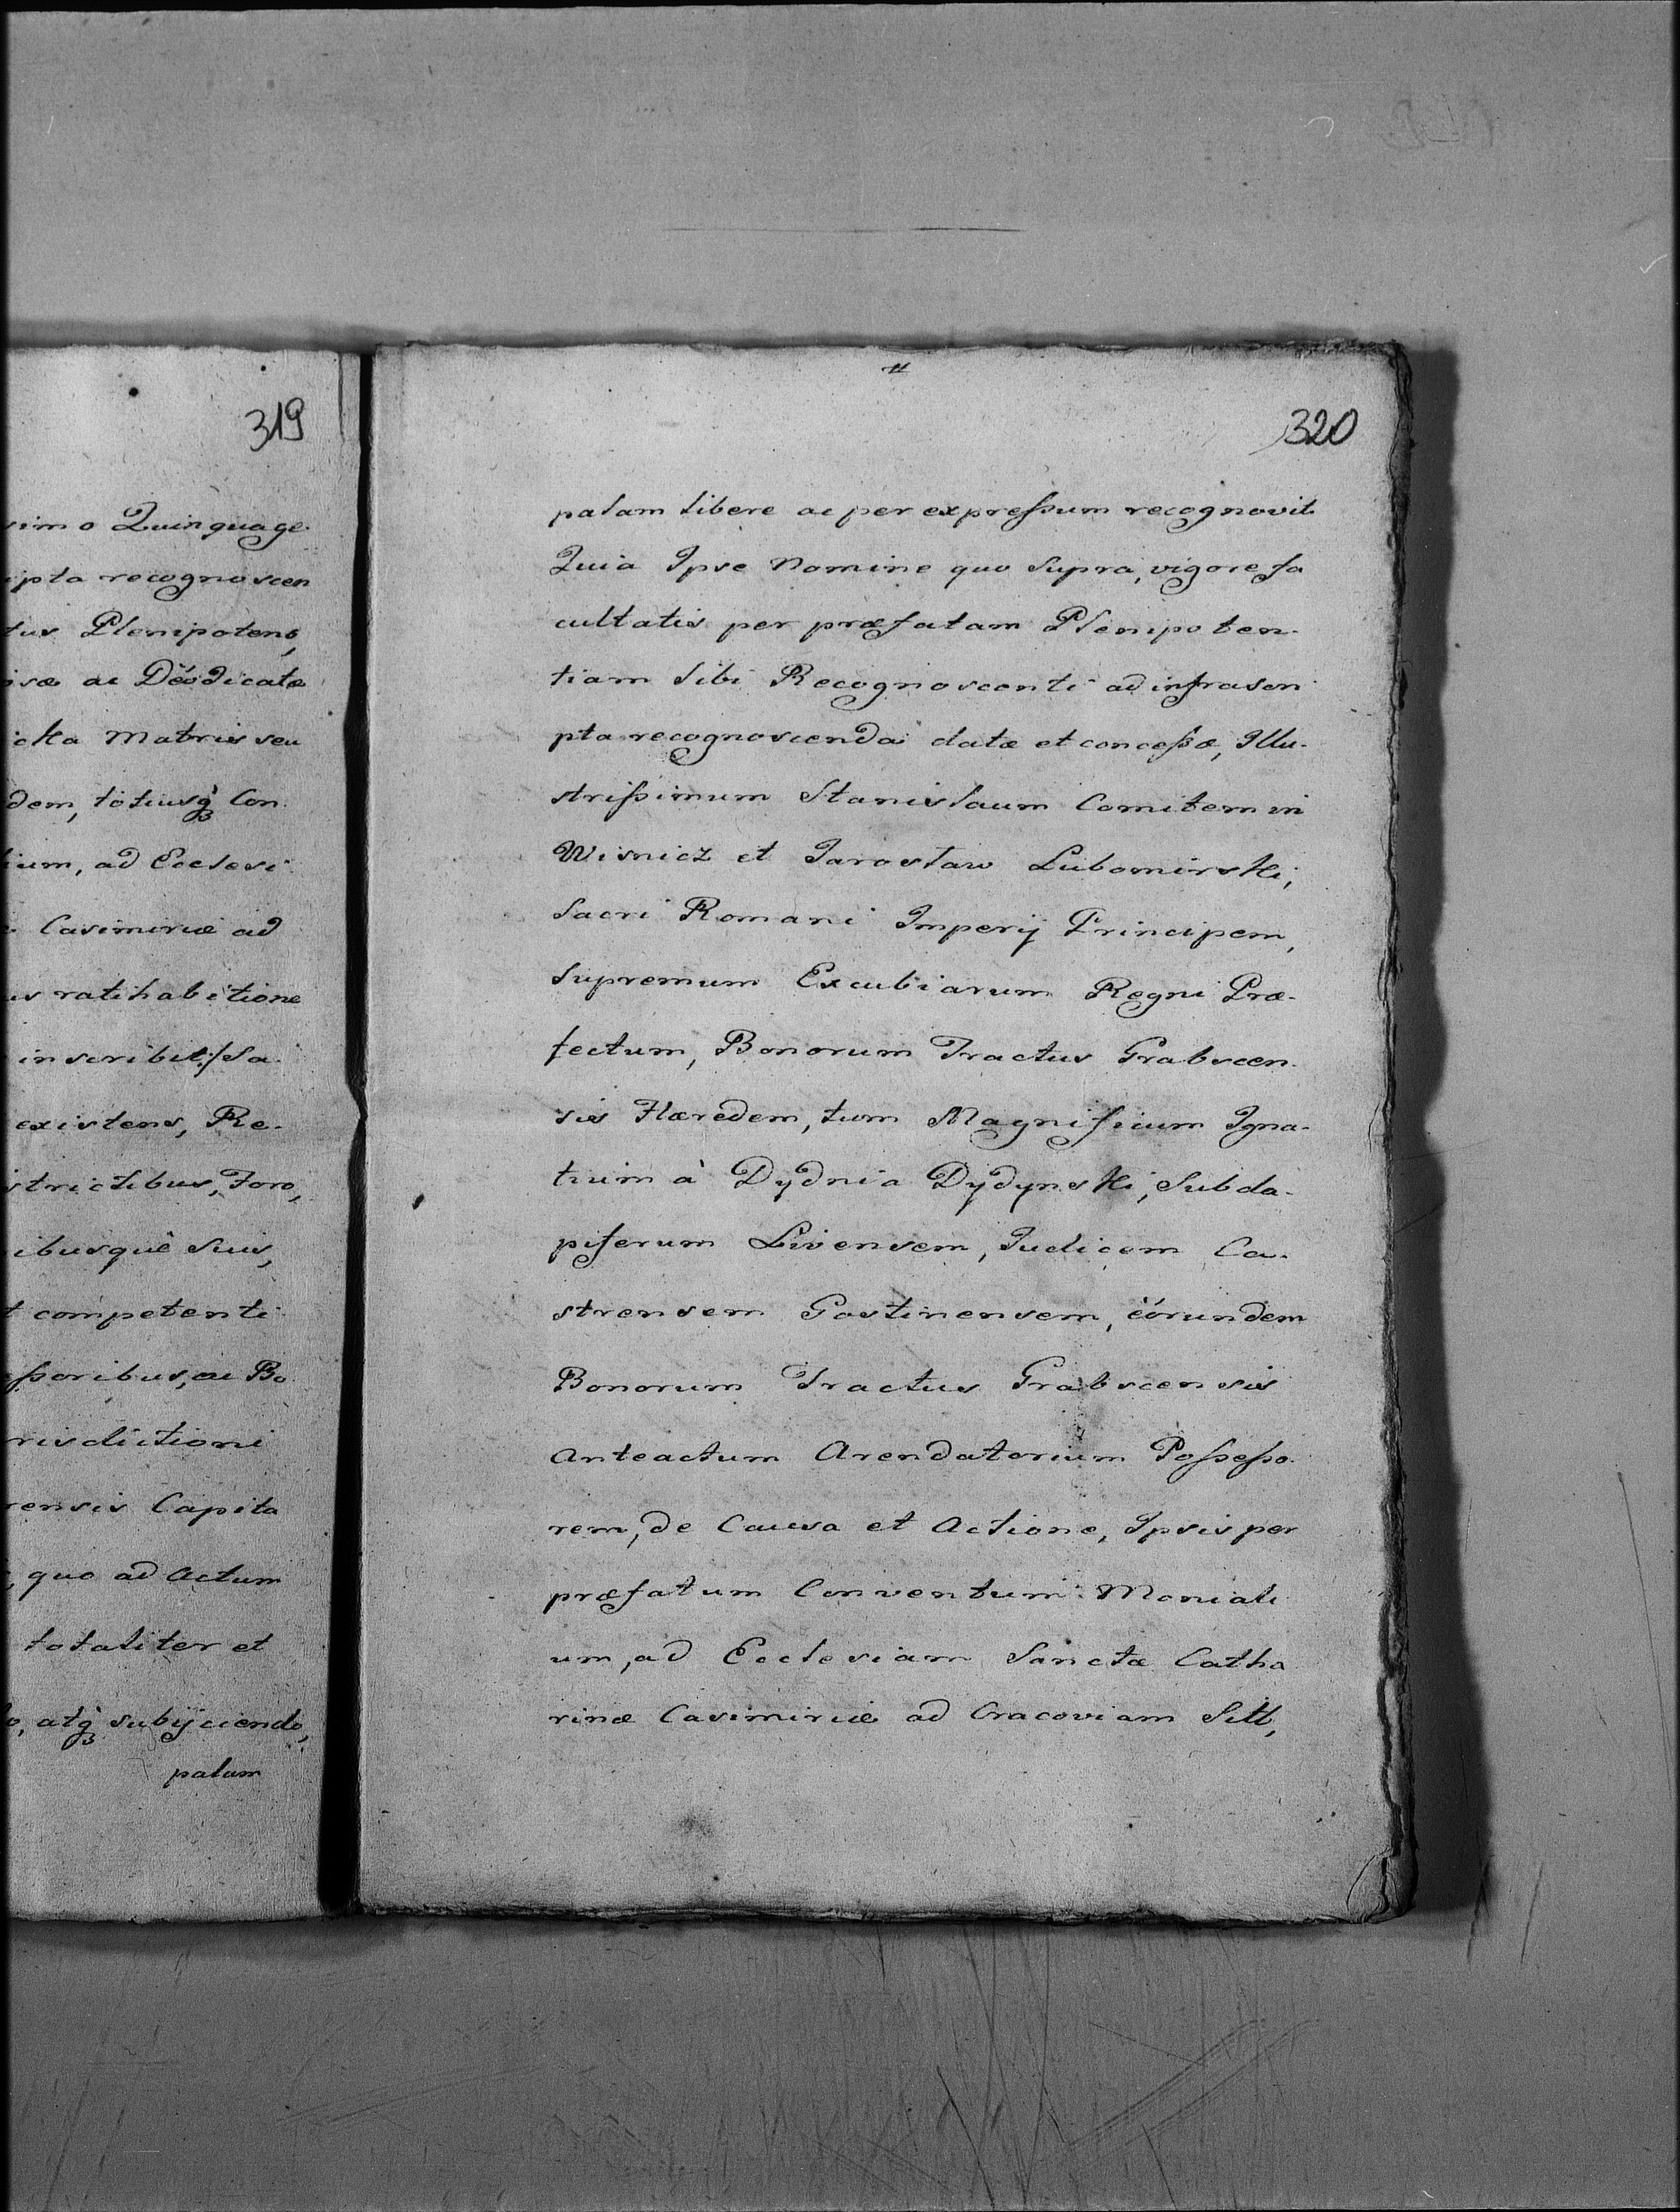 319
simo Quinquage
ipta recognoscen
tus Plenipotens,
osæ ac Dëódicatæ
cka Matris seu
dem, totiusq̀₃ Con
ium, ad Ecclesi
Casimiriæ ad
us ratihabitione
inscribit/Sa
existens, Re-
strictibus, Foro,
ibusquè Suis,
t competenti
ſsoribus, ac Bo
risdictioni
rensis Capita
, quo ad Actum
totaliter et
o, atq̀₃ subijciendo,
palam
320
palam libere ac per expreſsum recognovit
Quia Ipse Nomine quo Supra, vigore fa
cultatis per præfatam Plenipoten-
tiam Sibi Recognoscenti ad infrascri
pta recognoscenda datæ et conceſsæ, Illu-
striſsimum Stanislaum Comitem in
Wisnicz et Jarosław Lubomirski,
Sacri Romani Imperij Principem,
Supremum Excubiarum Regni Præ-
fectum, Bonorum Tractus Grabscen-
sis Hæredem, tum Magnificum Igna-
tium à Dydnia Dydynski, Subda-
piferum Livensem, Judicem Ca-
strensem Gostinensem, ëórundem
Bonorum Tractus Grabscensis
Anteactum Arendatorium Poſseſso
rem, de Causa et Actione, Ipsis per
præfatum Conventum Moniali
um, ad Ecclesiam Sanctæ Catha
rinæ Casimiriæ ad Cracoviam Sitt,